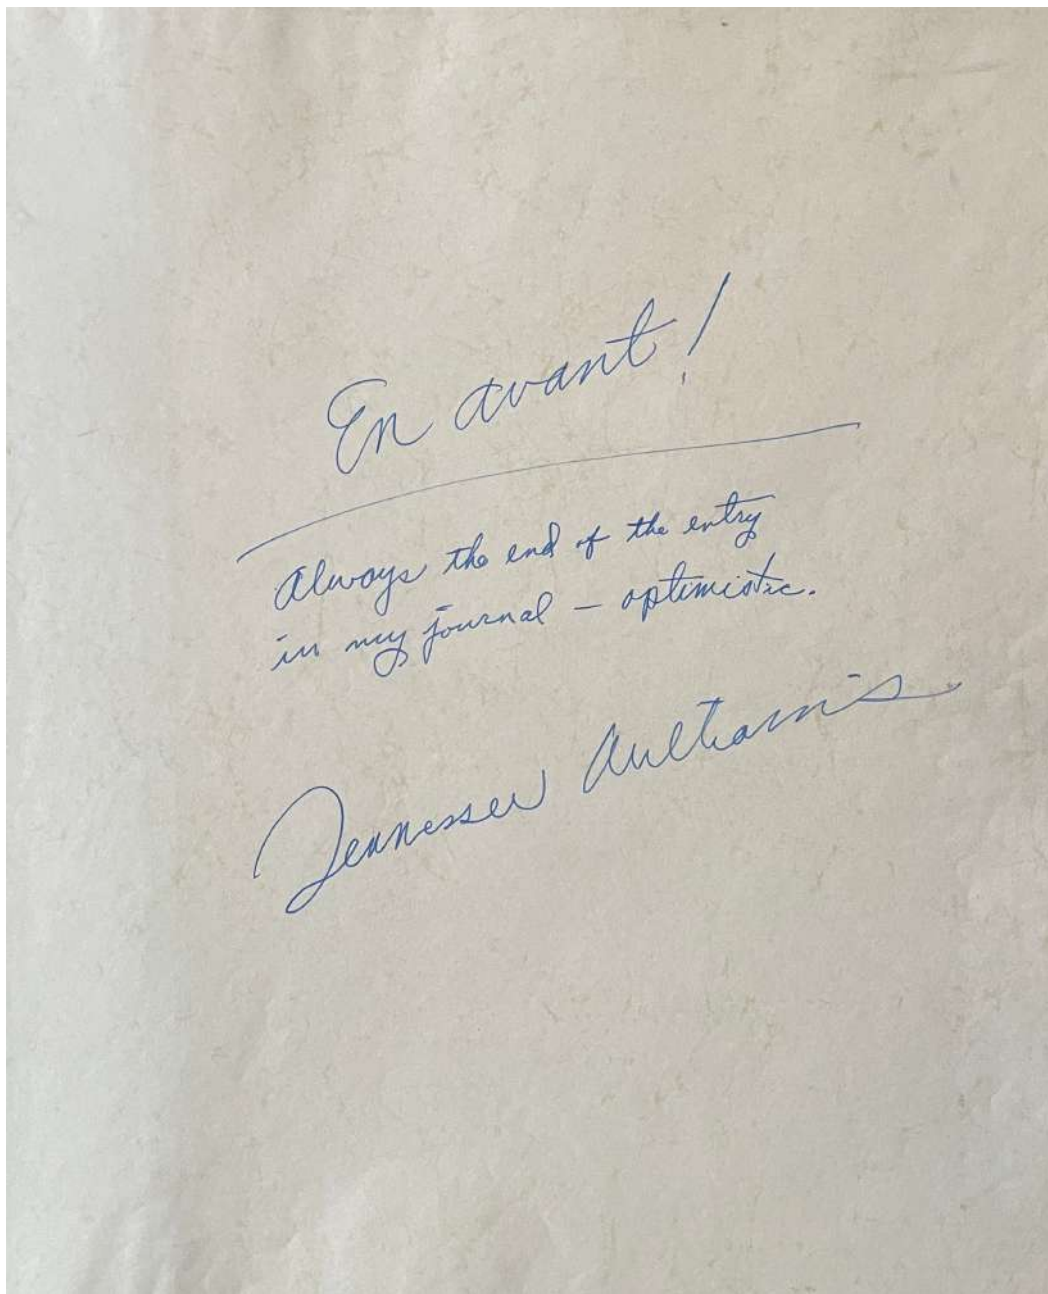 En avant!
Always the end of the entry
in my journal – optimistic.
Tennessee Williams